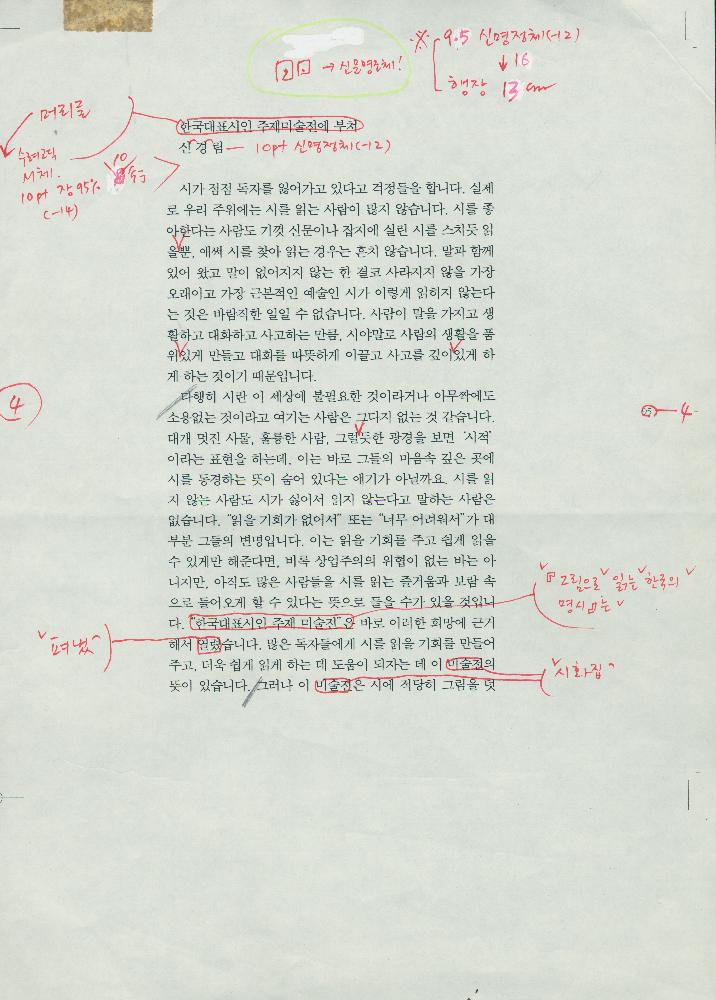 ※ 9.5 신명정체(-12)
↓ 16
행장 13 cm
→ 신문명조체!
머리글
한국대표시인 주제미술전에 부쳐
신경림 — 10pt 신명정체(-12)
수려고딕
서체.
10pt 장95%
(-14)
10
시가 점점 독자를 잃어가고 있다고 걱정들을 합니다. 실제
로 우리 주위에는 시를 읽는 사람이 많지 않습니다. 시를 좋
아한다는 사람도 기껏 신문이나 잡지에 실린 시를 스치듯 읽
을뿐, 애써 시를 찾아 읽는 경우는 흔치 않습니다. 말과 함께
있어 왔고 말이 없어지지 않는 한 결코 사라지지 않을 가장
오래이고 가장 근본적인 예술인 시가 이렇게 읽히지 않는다
는 것은 바람직한 일일 수 없습니다. 사람이 말을 가지고 생
활하고 대화하고 사고하는 만큼, 시야말로 사람의 생활을 품
위있게 만들고 대화를 따뜻하게 이끌고 사고를 깊이있게 하
게 하는 것이기 때문입니다.
다행히 시란 이 세상에 불필요한 것이라거나 아무짝에도
4
소용없는 것이라고 여기는 사람은 그다지 없는 것 같습니다.
25 4
대개 멋진 사물, 훌륭한 사람, 그럴듯한 광경을 보면 ‘시적’
이라는 표현을 하는데, 이는 바로 그들의 마음속 깊은 곳에
시를 동경하는 뜻이 숨어 있다는 얘기가 아닐까요. 시를 읽
지 않는 사람도 시가 싫어서 읽지 않는다고 말하는 사람은
없습니다. “읽을 기회가 없어서” 또는 “너무 어려워서”가 대
부분 그들의 변명입니다. 이는 읽을 기회를 주고 쉽게 읽을
수 있게만 해준다면, 비록 상업주의의 위협이 없는 바는 아
니지만, 아직도 많은 사람들을 시를 읽는 즐거움과 보람 속
으로 들어오게 할 수 있다는 뜻으로 들을 수가 있을 것입니
『그림으로 읽는 한국의
명시』는
다. “한국대표시인 주제 미술전”은 바로 이러한 희망에 근거
펴냈
해서 열렸습니다. 많은 독자들에게 시를 읽을 기회를 만들어
주고, 더욱 쉽게 읽게 하는 데 도움이 되자는 데 이 미술전의
시화집
뜻이 있습니다. 그러나 이 미술전은 시에 적당히 그림을 덧